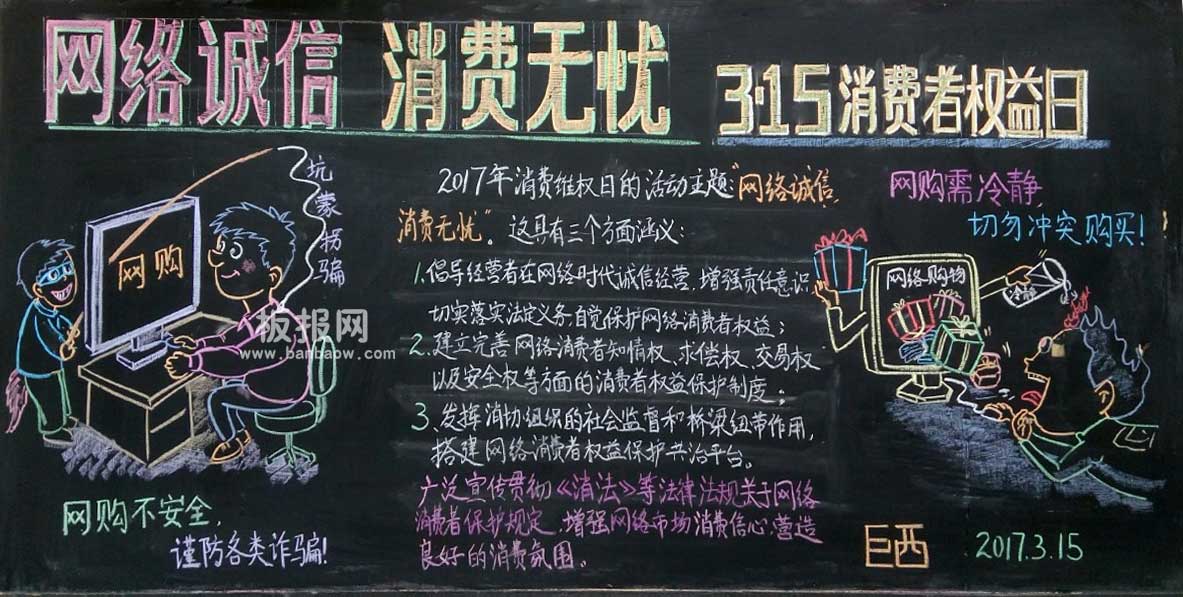 网络诚信 消费无忧
3·15消费者权益日
坑蒙拐骗
网购
网购不安全,
谨防各类诈骗!
2017年消费维权日的活动主题:"网络诚信,
消费无忧"。这具有三个方面涵义:
1.倡导经营者在网络时代诚信经营,增强责任意识,
切实落实法定义务,自觉保护网络消费者权益;
2.建立完善网络消费者知情权、求偿权、交易权
以及安全权等方面的消费者权益保护制度。
3.发挥消协组织的社会监督和桥梁纽带作用,
搭建网络消费者权益保护共治平台。
广泛宣传贯彻《消法》等法律法规关于网络
消费者保护规定,增强网络市场消费信心,营造
良好的消费氛围。
网购需冷静,
切勿冲突购买!
网络购物
冷静
巨西 2017.3.15
板报网
www.banbaow.com